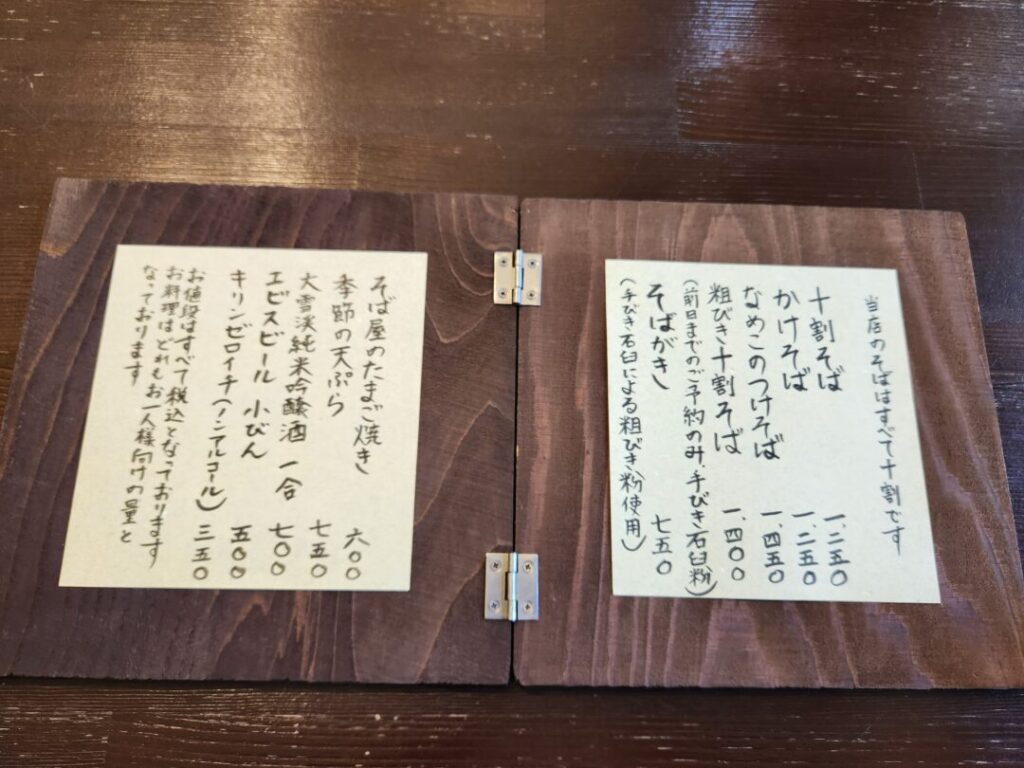 当店のそばはすべて十割です
十割そば 一、二五〇
かけそば 一、二五〇
なめこのつけそば 一、四五〇
粗びき十割そば 一、四〇〇
(前日までのご予約のみ、手びき石臼粉)
そばがき 七五〇
(手びき石臼による粗びき粉使用)
そば屋のたまご焼き 六〇〇
季節の天ぷら 七五〇
大雪渓純米吟醸酒 一合 七〇〇
エビスビール 小びん 五〇〇
キリンゼロイチ(ノンアルコール) 三五〇
お値段はすべて税込となっております
お料理はどれもお一人様向けの量と
なっております